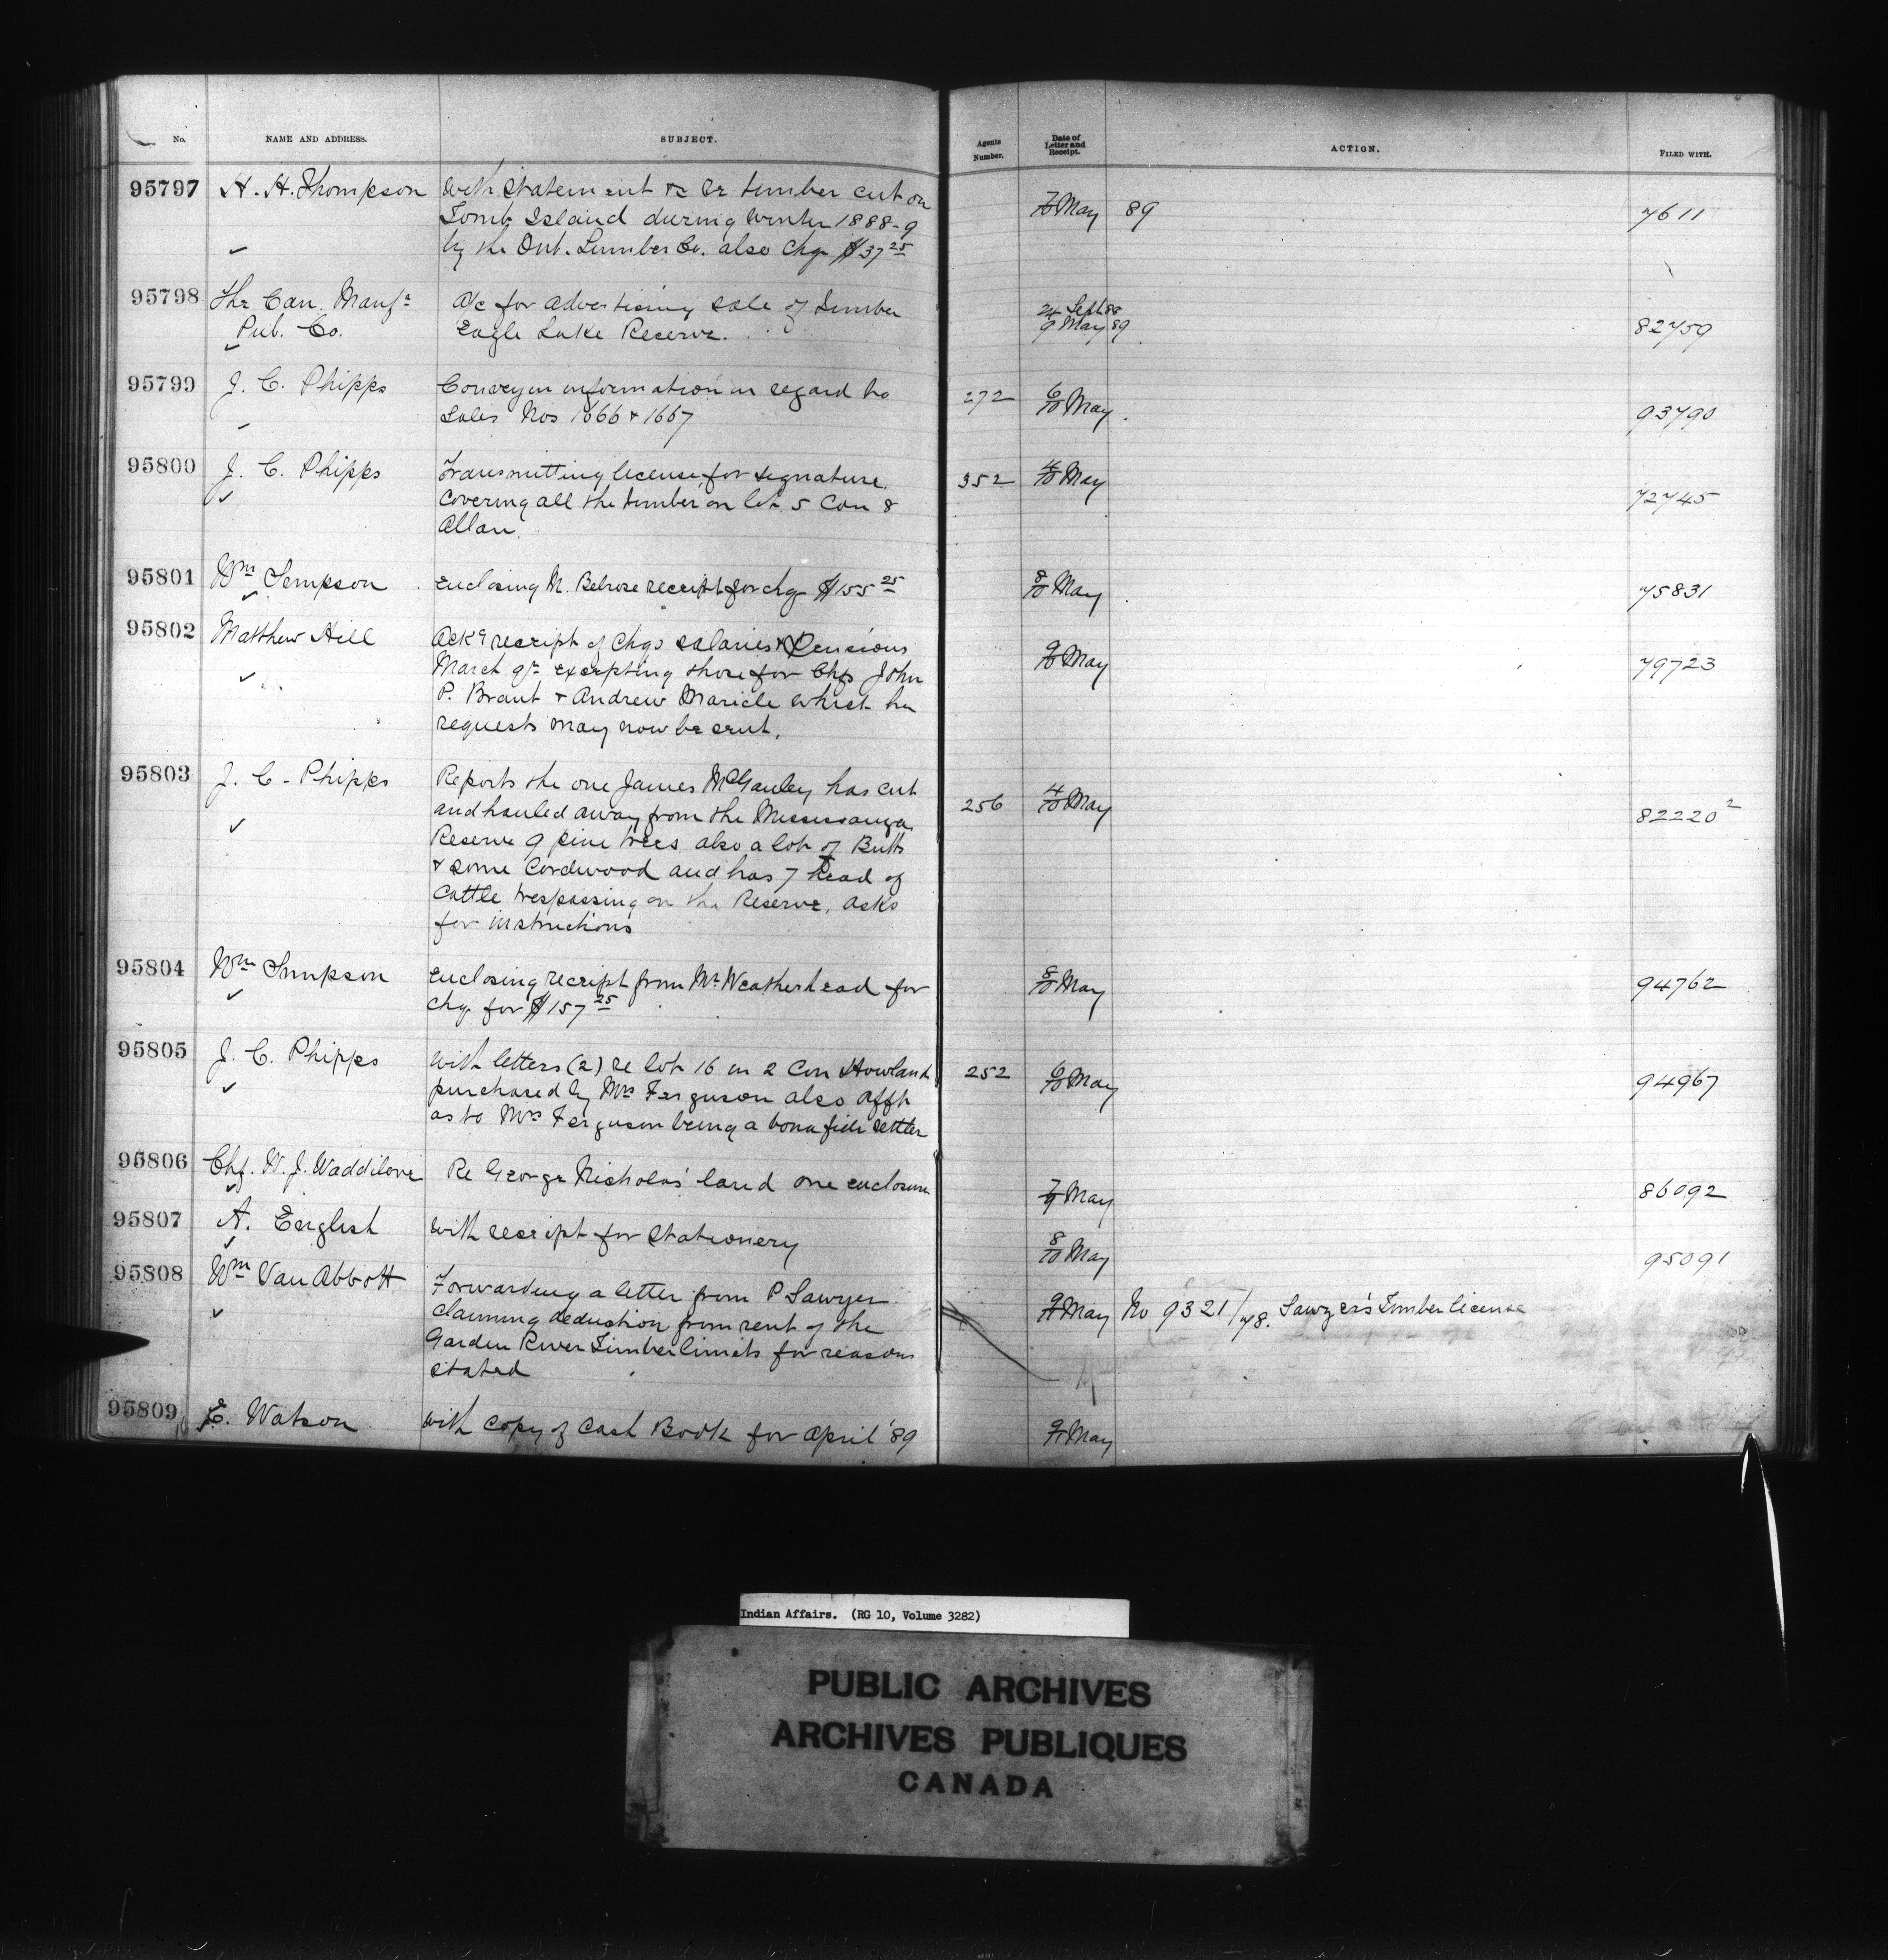 No. NAME AND ADDRESS. SUBJECT. Agents Number. Date of Letter and Receipt. ACTION. FILED WITH.
95797 H. H. Thompson With Statement &c re timber cut on
Tomb Island during Winter 1888-9
by the Ont. Lumber Co. also Chq $37 25
7/10 May 89 7611
95798 The Can. Manfr
Pub. Co.
A/c for Advertising sale of Timber
Eagle Lake Reserve.
24 Sept 88
9 May 89 82759
95799 J. C. Phipps Conveyin information in regard to
Sales Nos 1666 & 1667
272 6/10 May 93790
95800 J. C. Phipps Transmitting license for signature
Covering all the timber on lot 5 Con 8
Allan.
352 4/10 May 72745
95801 Wm Simpson Enclosing M. Belrose receipt for chq $155 25
8/10 May 75831
95802 Matthew Hill Ackg receipt of Chqs Salaries & Pensions
March qr excepting those for Chfs John
P. Brant & Andrew Maricle which he
requests may now be sent.
9/10 May 79723
95803 J. C. Phipps Reports the one James McGauley has cut
and hauled away from the Mississauga
Reserve 9 pine trees also a lot of Butts
& some Cordwood and has 7 head of
Cattle trespassing on the Reserve, asks
for instructions
256 4/10 May 82220 2
95804 Wm Simpson Enclosing receipt from Mr Weatherhead for
Chq for $157 25
8/10 May 94762
95805 J. C. Phipps With letters (2) re lot 16 in 2 Con Howland
purchased by Mrs Ferguson also Afft
as to Mrs Ferguson being a bona fide settler
252 6/10 May 94967
95806 Chf. W. J. Waddilove Re George Nicholas' land one enclosure
7/9 May 86092
95807 A. English With receipt for Stationery
8/10 May 95091
95808 Wm Van Abbott Forwarding a letter from P Sawyer
Claiming deduction from rent of the
Garden River Timber limits for reasons
Stated
9/11 May No 9321/78. Sawyer's Timber license
95809 E. Watson With Copy of Cash Book for April '89
9/11 May
Indian Affairs. (RG 10, Volume 3282)
PUBLIC ARCHIVES
ARCHIVES PUBLIQUES
CANADA